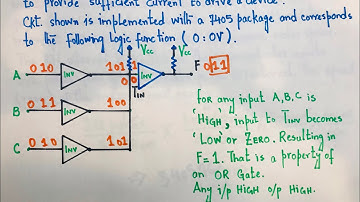 to provide sufficient current to drive a device.
Ckt. shown is implemented with a 7405 package and corresponds
to the following logic function (0:0V).
Vcc Vcc
A 010 INV 101 1 INV F 011
00
TIN
B 011 INV 100
C 010 INV 101
For any input A,B,C is
'HIGH', input to TINV becomes
'LOW' or ZERO. Resulting in
F=1. That is a property of
an OR Gate.
Any i/p HIGH o/p HIGH.